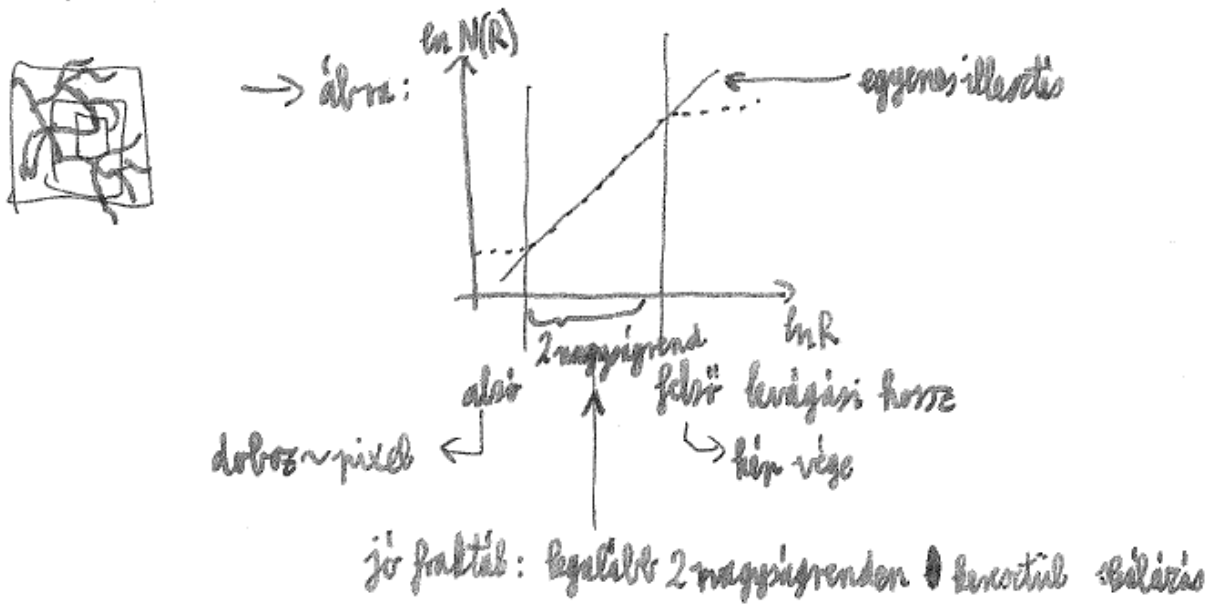 ln N(R)
→ ábra:
egyenes illesztés
ln R
2 nagyságrend
alsó felső levágási hossz
doboz ~ pixel
kép vége
jó fraktál: legalább 2 nagyságrenden keresztül skálázás